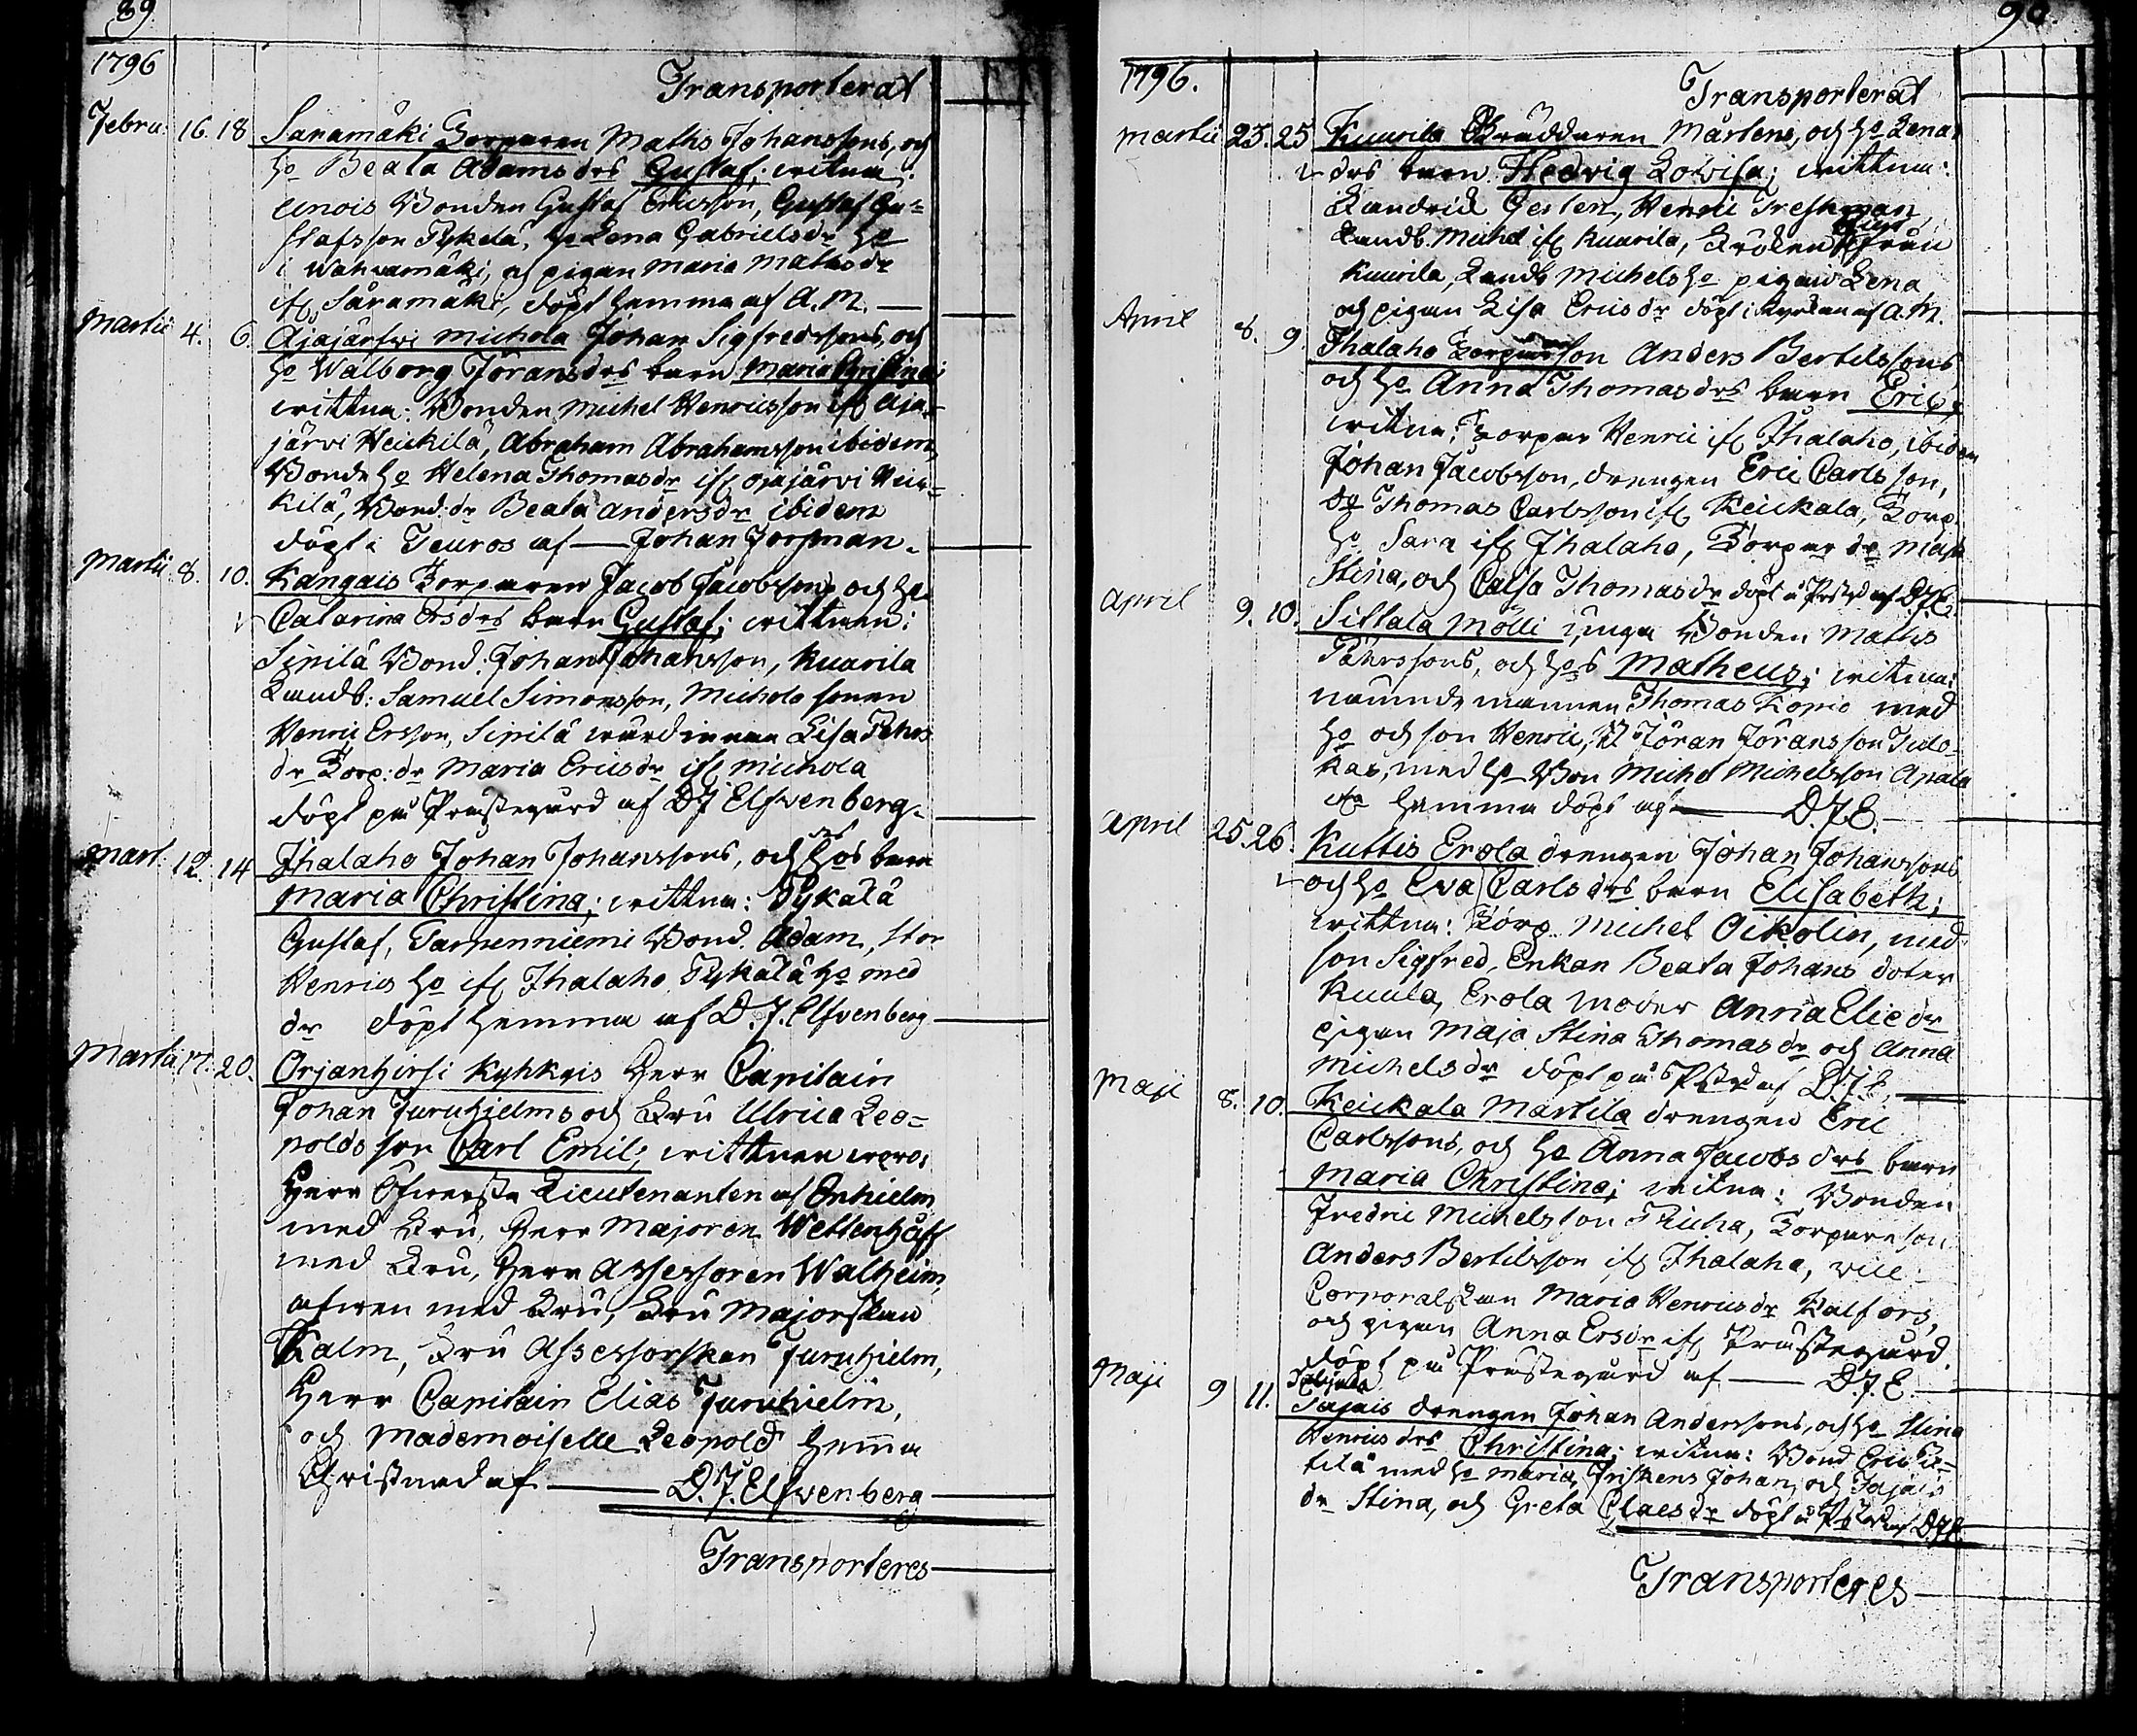 89.
1796
Transporterat
Febru: 16. 18 Saramäki Torparen Maths Johanssons, och
ho Beata Adamsdrs Gustaf; wittna:
Bonden Gustaf Ericsson, Gustaf Gu=
stafsson Pykälä, ho Lena Gabrielsdr ho
i Wahramäki, och pigan Maria Mathsdr
ifr Saramäki, döpt hemma af A. M. —
Martii 4. 6. Ajajärfwi Michola Johan Sigfredssons, och
ho Walborg Jöransdrs barn Maria Christina;
wittna: Bonden Michel Henricsson ifr Aja=
järvi Heickilä, Abraham Abrahamsson ibidem,
Bonde ho Helena Thomasdr ifr Ajajärvi Heic=
kilä, Bond: dr Beata Andersdr ibidem
döpt i Teuros af — Johan Forsman.
Martii 8. 10. Kangais Torparen Jacob Jacobssons och ho
Catarina Ersdrs barn Gustaf; wittnen:
Sipilä Bond: Johan Johansson, Kuurila
Landb: Samuel Simonsson, Michola sonen
Henric Ersson, Sipilä wärdinnan Lisa Pehrs
dr Torp: dr Maria Ericsdr ifr Michola
döpt på Prästegård af D J Elfvenberg.
Mart: 12. 14 Ihalaho Johan Johanssons, och hos barn
Maria Christina; wittna: Pykälä
Gustaf, Tarpenniemi Bond. Adam, Stor
Henrics ho ifr Ihalaho, Pykälä ho med
dr döpt hemma af D. J. Elfvenberg
Martii 17. 20. Orjanhirsi Kyhkyis Herr Capitain
Johan Furuhjelms och Fru Ulrica Leo=
polds son Carl Emil; wittnen woro:
Herr Öfwerste Lieutenanten af Enhielm
med Fru, Herr Majoren Wettenhoff
med Fru, Herr Assessoren Walheim,
äfwen med Fru, Fru Majorskan
Kalm, Fru Assessorskan Furuhjelm,
Herr Capitain Elias Furuhielm,
och Mademoiselle Leopold hemma
Christnad af — D. J. Elfvenberg
Transporteres
90.
1796.
Transporterat
Martii 23. 25 Kuurila Mårtens, och ho Lena
drs barn Hedvig Lovisa; wittna:
Henric
Landb. Michel ifr Kuurila, från
Kuurila, Landb Michels ho pigan Lena,
och pigan Lisa Ericsdr döpt i Kyrkan af A. M.
April 8. 9. Ihalaho Torparson Anders Bertilssons
och ho Anna Thomasdrs barn Eric;
wittna: Torpar Henric ifr Ihalaho, ibidem
Johan Jacobsson, drengen Eric Carlsson,
Thomas Carlsson ifr Keickala, Torp.
ho Sara ifr Ihalaho, Torpar dr Maja
Stina, och Cajsa Thomasdr döpt å Prstgd af DJE.
April 9. 10. Sittala Mölli unga Bonden Maths
Pährssons, och hos Matheus; wittna:
nämndemannen Thomas Kopio med
ho och son Henric, Jöran Jöransson
med ho Bon Michel Michelsson Apala
hemma döpt af — D. J. E.
April 25. 26. Kuttis Erola drengen Johan Johanssons
och ho Eva Carlsdrs barn Elisabeth;
wittna: Torp. Michel Oikolin, med
son Sigfred, Enkan Beata Johans doter
Kuula, Erola moder Anna Elicdr
pigan Maja Stina Thomasdr och Anna
Michelsdr döpt på Prstgd af D. J. E.
Maji 8. 10. Keickala Martila drengen Eric
Carlssons, och ho Anna Jacobsdrs barn
Maria Christina; wittna: Bonden
Fredric Michelsson Torpareson
Anders Bertilsson ifr Ihalaho, vice
Corporalskan Maria Henricsdr Kalfors,
och pigan Anna Ersdr ifr Prästegård.
döpt på Prästegård af — D. J. E
Maji 9 11. Jajais drengen Johan Anderssons, och ho Stina
Henricsdrs Christina; wittna: Bond Eric
tilä med ho Maria, Friskens Johan, och Jajais
dr Stina, och Greta Claesdr döpt å Prstgd af DJE.
Transporteres